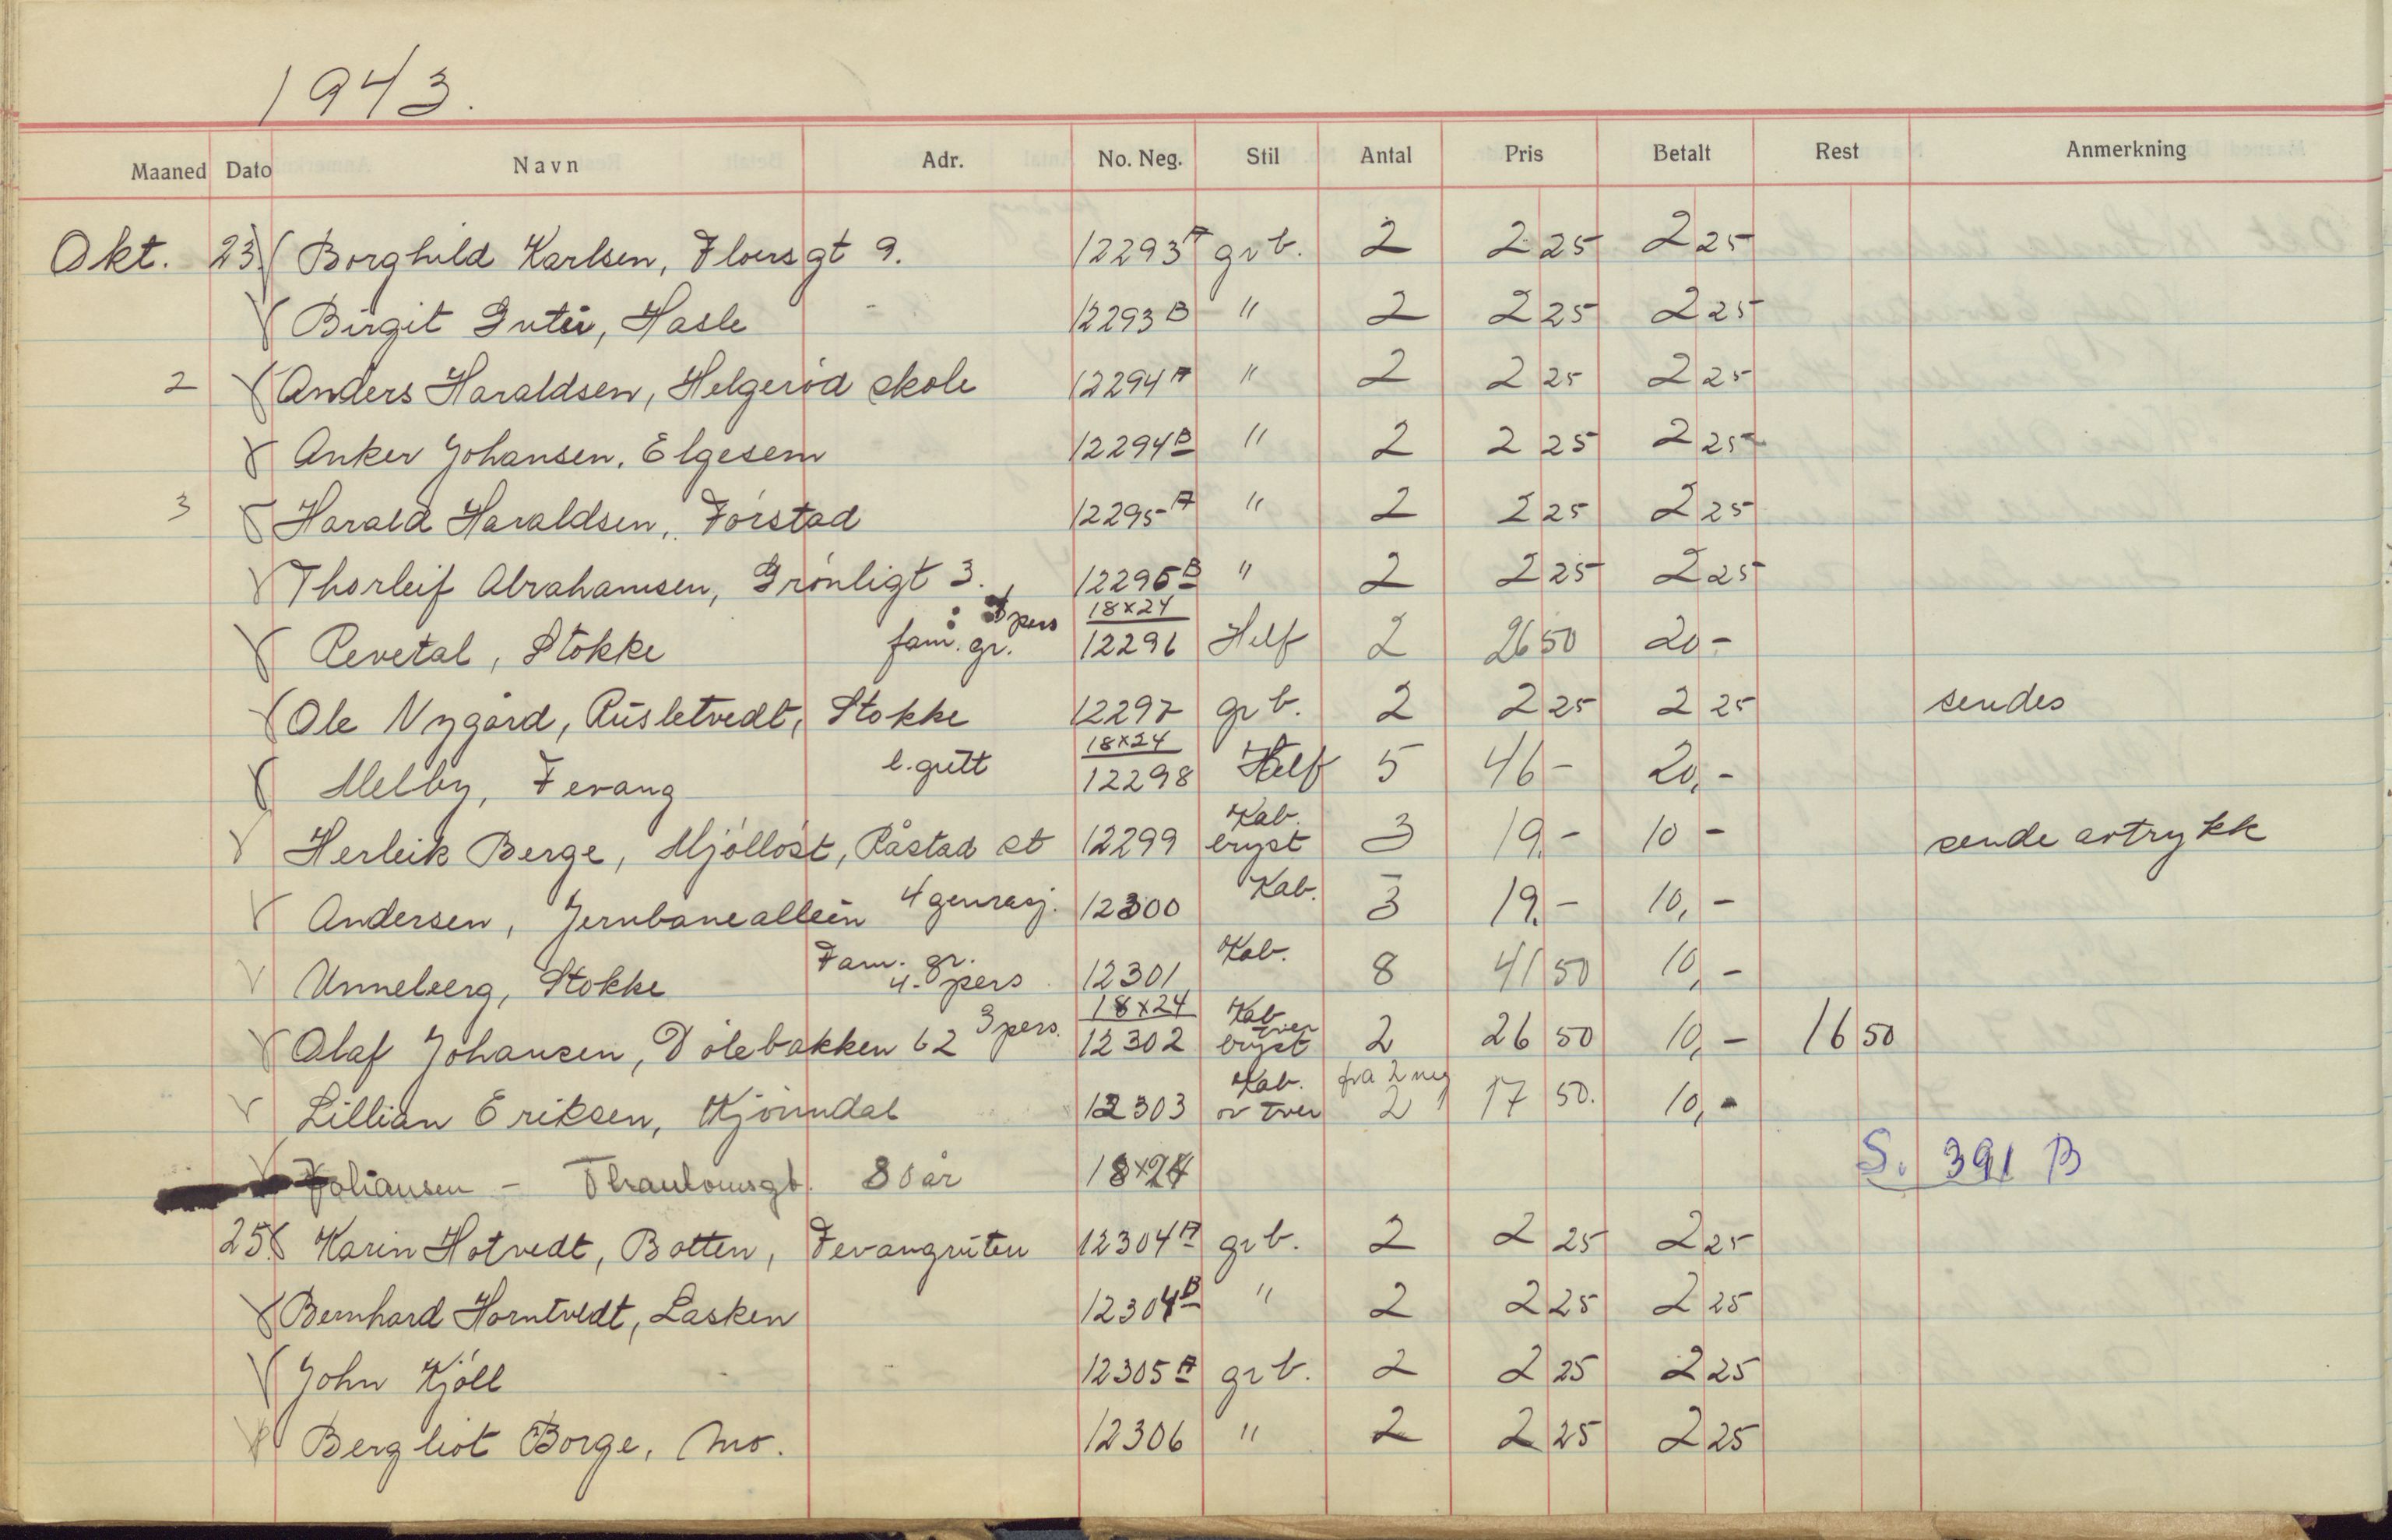 1943.
Maaned Dato Navn Adr. No. Neg. Stil Antal Pris Betalt Rest Anmerkning
Okt. 23. Borghild Karlsen, Floersgt 9. 12293 A gr b. 2 2 25 2 25
Birgit Gutu, Hasle 12293 B " 2 2 25 2 25
2 Anders Haraldsen, Helgerød skole 12294 A " 2 2 25 2 25
Anker Johansen, Elgesem 12294 B " 2 2 25 2 25
3 Harald Haraldsen, Førstad 12295 A " 2 2 25 2 25
Thorleif Abrahamsen, Grønligt 3. 12295 B " 2 2 25 2 25
pers 18x24
Revetal, Stokke fam. gr. 12296 Helf 2 26 50 20 -
Ole Nygård, Rusletvedt, Stokke 12297 gr b. 2 2 25 2 25 sendes
18x24
Melby, Fevang l. gutt 12298 Helf 5 46 - 20, -
Kab.
Herleik Berge, Mjølløst, Råstad st 12299 bryst 3 19. - 10 - sende avtrykk
Andersen, Jernbanealleen 4 genrasj. 12300 Kab. 3 19. - 10, -
Fam. gr.
Unneberg, Stokke 4. pers 12301 Kab. 8 41 50 10, -
18x24 Kab
tver
Olaf Johansen, Dølebakken 62 3 pers. 12302 bryst 2 26 50 10, - 16 50
Kab. fra 2 neg
Lillian Eriksen, Kjønndal 12303 ov tver 2 17 50. 10, -
Johansen - Thaulowsgt. 80 år 18x24 S. 391 B
25. Karin Hotvedt, Botten, Fevangruten 12304 A gr b. 2 2 25 2 25
Bernhard Horntvedt, Lasken 12304 B " 2 2 25 2 25
John Kjøll 12305 A gr b. 2 2 25 2 25
Bergliot Borge, Mo. 12306 " 2 2 25 2 25